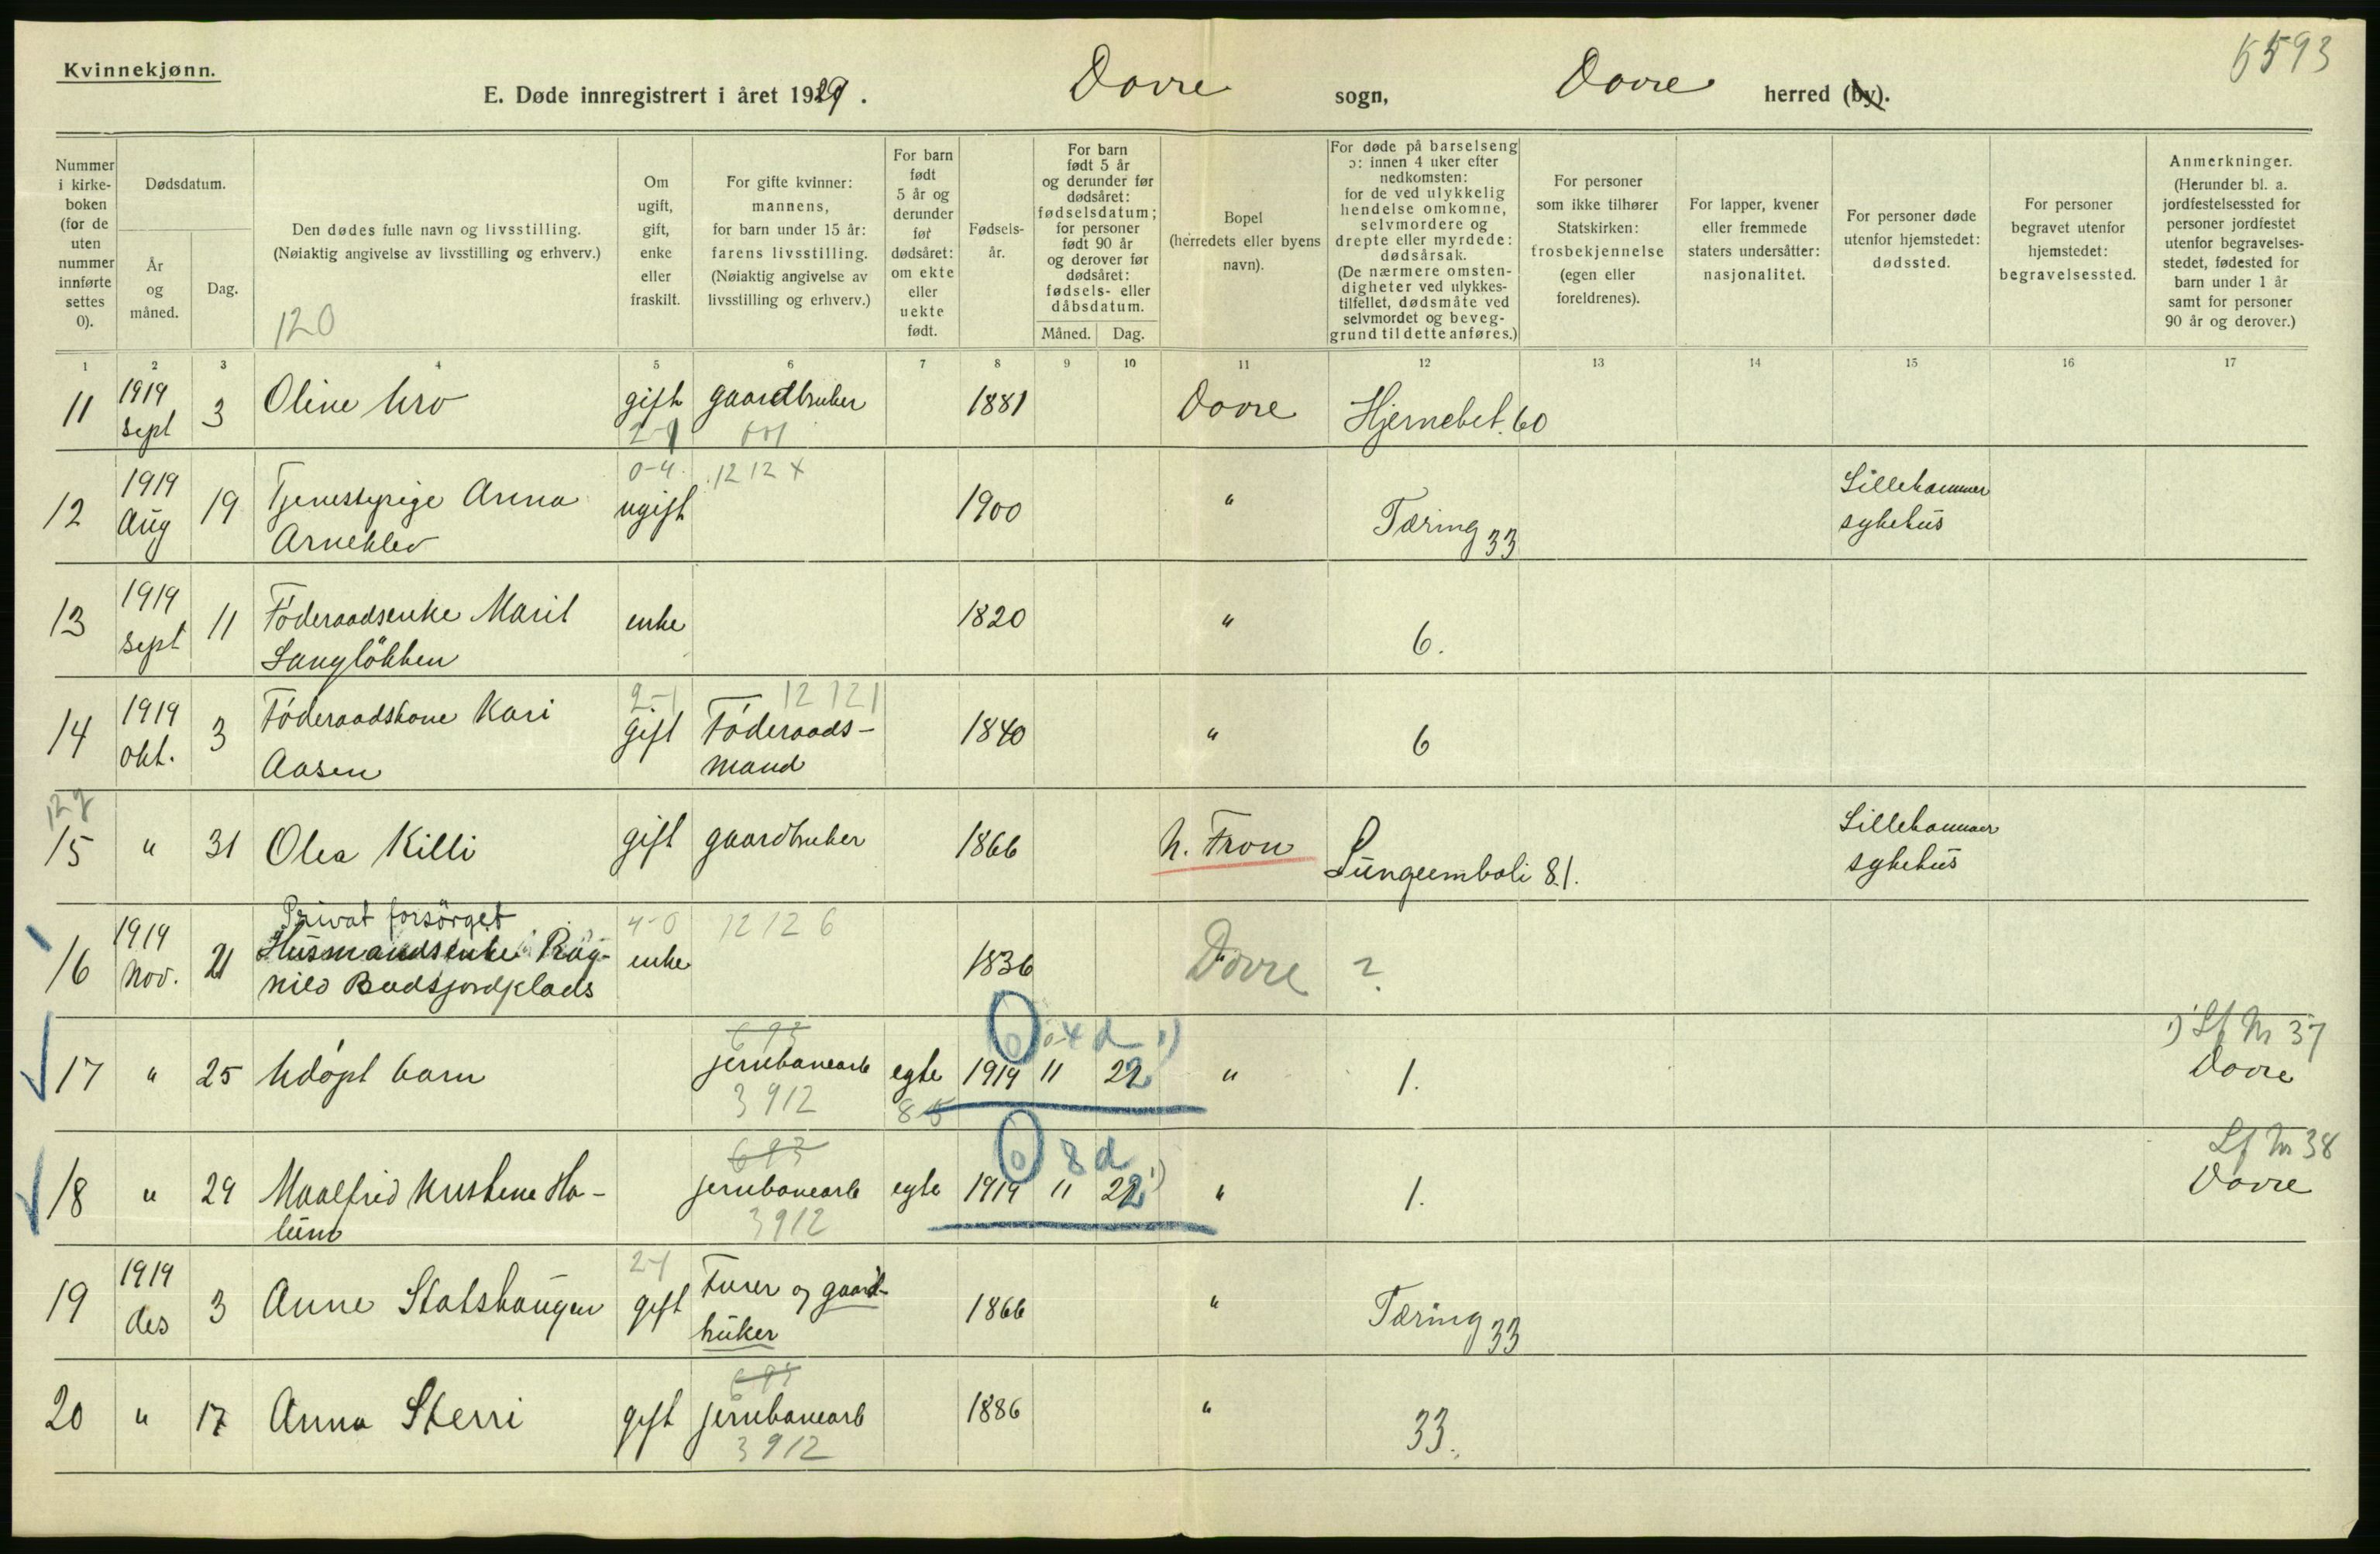 Kvinnekjønn.
5593
E. Døde innregistrert i året 1919. Dovre sogn, Dovre herred (by).
Nummer i kirke-boken (for de uten nummer innførte settes 0).
Dødsdatum.
År og måned.
Dag.
Den dødes fulle navn og livsstilling.
(Nøiaktig angivelse av livsstilling og erhverv.)
120
Om ugift, gift, enke eller fraskilt.
For gifte kvinner: mannens, for barn under 15 år: farens livsstilling.
(Nøiaktig angivelse av livsstilling og erhverv.)
For barn født 5 år og derunder før dødsåret: om ekte eller uekte født.
Fødsels-år.
For barn født 5 år og derunder før dødsåret: fødselsdatum; for personer født 90 år og derover før dødsåret: fødsels- eller dåbsdatum.
Måned. Dag.
Bopel (herredets eller byens navn).
For døde på barselseng ɔ: innen 4 uker efter nedkomsten: for de ved ulykkelig hendelse omkomne, selvmordere og drepte eller myrdede: dødsårsak.
(De nærmere omsten-digheter ved ulykkes-tilfellet, dødsmåte ved selvmordet og beveg-grund til dette anføres.)
For personer som ikke tilhører Statskirken: trosbekjennelse (egen eller foreldrenes).
For lapper, kvener eller fremmede staters undersåtter: nasjonalitet.
For personer døde utenfor hjemstedet: dødssted.
For personer begravet utenfor hjemstedet: begravelsessted.
Anmerkninger.
(Herunder bl. a. jordfestelsessted for personer jordfestet utenfor begravelses-stedet, fødested for barn under 1 år samt for personer 90 år og derover.)
1 2 3 4 5 6 7 8 9 10 11 12 13 14 15 16 17
11 1919 sept 3 Oline Uro gift gaardbruker 1881 Dovre Hjernebet. 60
2-1
12 1919 Aug 19 Tjenestepige Anna ugift 1900 " Tæring 33 Lillehammer sykehus
0-4 12 12 x
Arneklev
13 1919 sept 11 Föderaadsenke Marit enke 1820 " 6.
Langlökken
14 1919 okt. 3 Föderaadskone Kari gift Föderaads- 1840 " 6
2-1 12 121
Aasen mand
127
15 " 31 Olea Killi gift gaardbruker 1866 N. Fron Lungeemboli 81. Lillehammer sykehus
Privat forsörget 4-0 12 12 6
16 1919 Nov. 21 Husmandsenke Rag- enke 1836 Dovre ?
nild Budsjordplads
693 0 4 d 1) 1) Lf Nr 37
17 " 25 Udöpt barn jernbanearb egte 1919 11 22 " 1. Dovre
3912 85
693 0 8 d Lf Nr 38
18 " 29 Maalfrid Kristine Ha- jernbanearb egte 1919 11 22 1) " 1. Dovre
lund 3912
2-1
19 1919 des 3 Anne Statshaugen gift Furer og gaard- 1866 " Tæring 33
bruker
20 " 17 Anna Sterri gift jernbanearb 1886 " 33.
3912